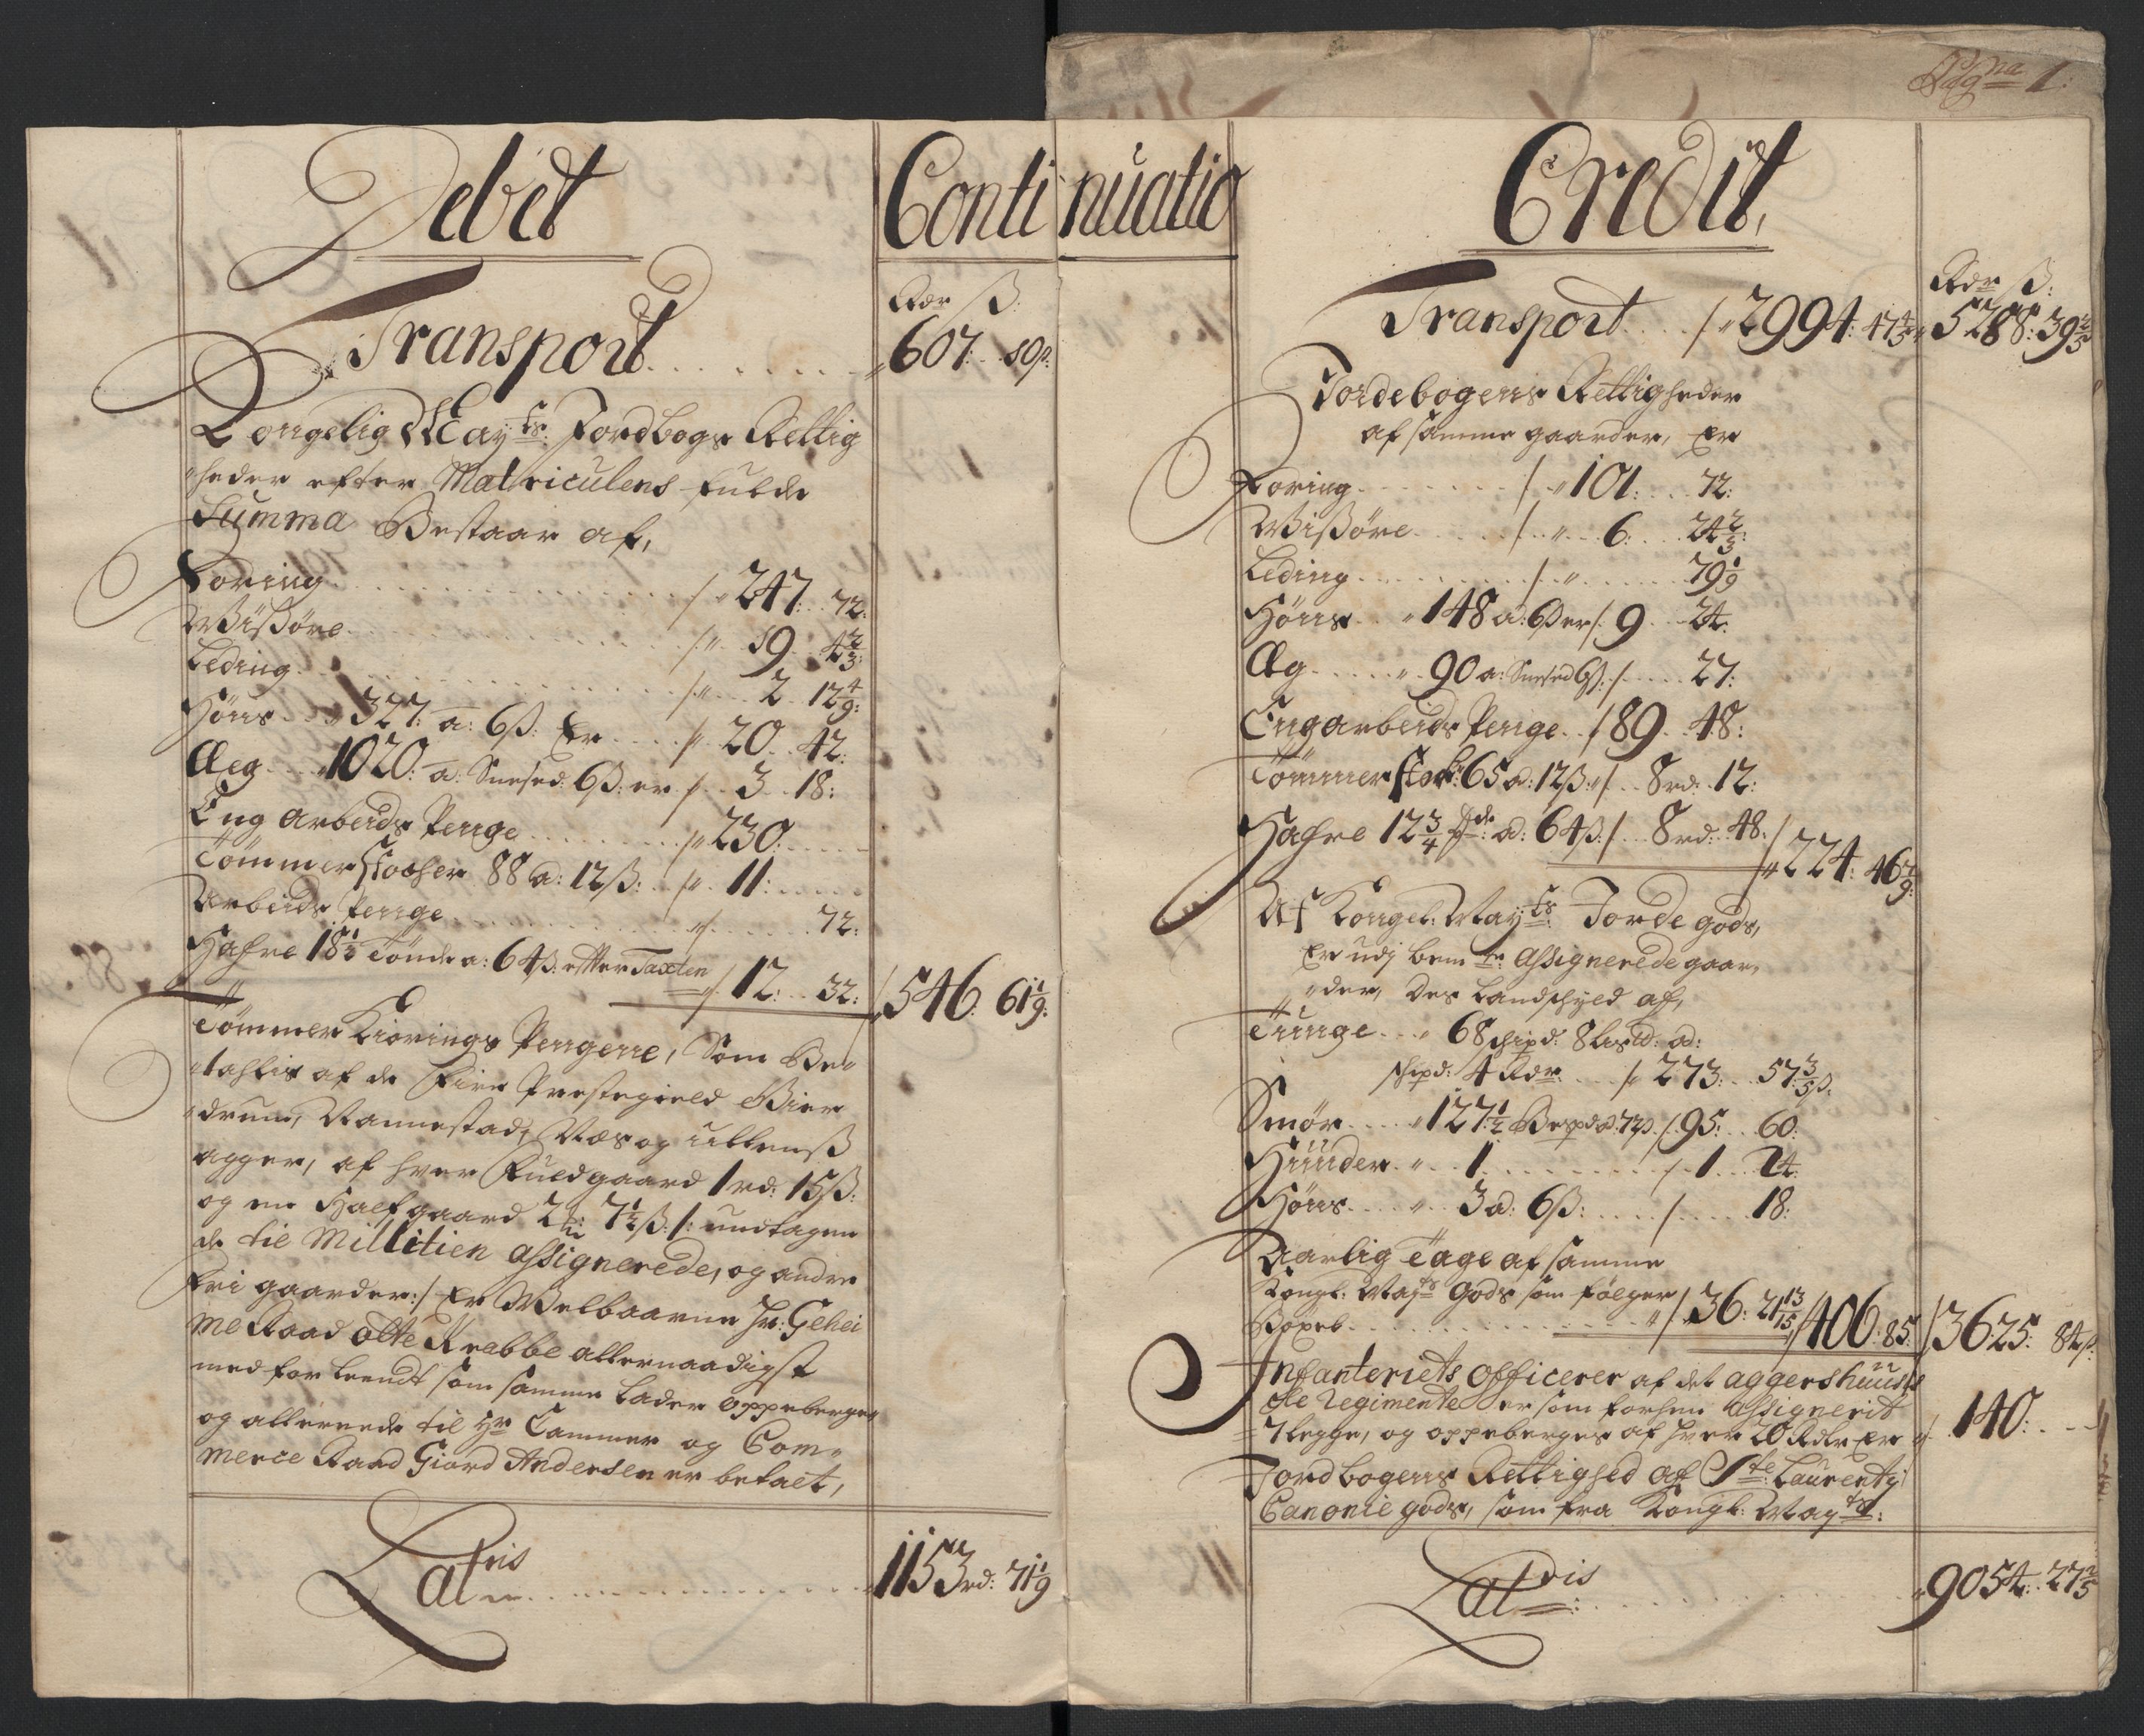 Pag: na 1:
Debet
Continuatio
Credit,
Rdr ß:
Transport . . . . . . . „607: . . 10ß:
Kongelig Mayts: Jordbogs Rettig
„heder efter Matriculens fulde
Summa Bestaar af,
Foring . . . . . /„247: . . 72:
Wißøre . . . . . /„ 19 . . 4 2/3:
Leding . . . . . /„ 2 . 12 4/9:
Høns . . „327: a: 6ß: Er . . . /„ 20 . . 42:
Æeg . . . „1020: a: Snesed: 6ß: er /„ 3 . . 18:
Eng Arbeids Penge . . . . . /„230: . . . .
Tømmer Stocher 88 a: 12ß: . . /„ 11: . . . .
Arbeids Penge . . . . . „/. . . . . 72:
Hafre 18 1/2 Tønde a: 64ß: efter Taxten „/ 12: . . 32: /546: 61 1/9:
Tømmer Kiørings Pengene, Som Be„
„tahlis af de Fire Prestegield Bier
„drum, Rannestad, Næs og Ullens
agger, af hver Fuldgaard 1 rd: 15ß:
og en Half gaard 2 7 1/2ß: /: undtagen
de til Millitien Assignerede, og andre
fri gaarder:/ Er Welbaarne Hr: Gehei
me Raad Otte Krabbe allernaadigst
med forleendt som samme Lader oppeberge
og allerede til Hr Cammer og Com„
merce Raad Giord Andersen er betalt,
Latris . . . . . „1153 rd: 71 1/9
Rdr ß:
Transport . . . . /„2994: 47 4/5„ 5288: 39 2/5
Jordebogens Rettigheder
af samme gaarder, Er
Foring . . . . . / „101: . . . 72:
Wißøre . . . . . /. . „ . . 6: . . . 24 2/3:
Leding . . . . . / „ . . . . . 79 1/9
Høns . . „148 a: 6ß er /: 9 . . 24:
Æg . . . . . „ 90 a: Snesed 6ß: /. . . . 27:
Engarbeids Penge . . /89 . . 48:
Tømmer Stok: 65 a: 12ß: „/ . . 8 rd: . 12:
Hafre 12 3/4 Tdr: a: 64ß: / . . 8 rd: . 48. /„224: 46 7/9:
Af Kongel: Mayts: Jorde gods,
Er udj bemte: Assignerede gaar„
„der, Des Landschyld af,
Tunge . . . „ 68 schipd: 8 Lispd: ad:
schipd: 4 Rdr: . . . /„ 273: . . 57 3/5ß.
Smør . . . . „127 1/2 Bispd a: 72ß: /: 95: . . 60:
Huuder . „ . . 1 . . . . . /. 1 . . 24:
Høns . . . . „ . . 3 a: 6ß: . . . . /. . . . . 18:
Aarlig Tage af samme
Kongl: Mayts Gods som følger
Bøxel . . . . . „/ 36: 21 13/15 /406: 85: /3625: 84ß.
Infanteriets Officerer af det aggershuus
ske Regimente er som forhen Assignerit
7 legge, og oppeberges af hver 20 Rdlr Er „ . 140: . .
Jordbogens Rettighed af Ste: Laurentij
Canonie gods, som fra Kongl: Mayts:
Latris . . . . . „9054: . 27 2/5